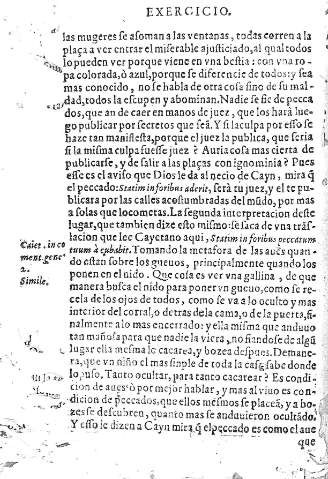 EXERCICIO.
las mugeres se asoman a las ventanas, todas corren a la
plaça a ver entrar el miserable ajusticiado, al qual todos
lo pueden ver porque viene en vna bestia: con vna ro-
pa colorada, ò azul, porque se diferencie de todos: y sea
mas conocido, no se habla de otra cosa sino de su mal-
dad, todos la escupen y abominan. Nadie se fie de pecca-
dos, que an de caer en manos de juez, que los hará lue-
go publicar por secretos que seã. Y si la culpa por esso se
haze tan manifiesta, porque el juez la publica, que seria
si la misma culpa fuesse juez? Autia cosa mas cierta de
publicarse, y de salir a las plaças con ignominia? Pues
esse es el auiso que Dios le da al necio de Cayn, mira q̃
el peccado: Statim in foribus aderit, serà tu juez, y el te pu-
blicara por las calles acostumbradas del mũdo, por mas
a solas que lo cometas. La segunda interpretacion deste
lugar, que tambien dize esto mismo: se saca de vna tras-
lacion que lee Cayetano aqui, Statim in foribus peccatum
tuum à cubabit. Tomando la metafora de las aues quan-
do estàn sobre los gueuos, principalmente quando los
ponen en el nido. Que cosa es ver vna gallina, de que
manera busca el nido para poner vn gueuo, como se re-
cela de los ojos de todos, como se va a lo oculto y mas
interior del corral, o detras de la cama, o de la puerta, fi-
nalmente a lo mas encerrado: y ella misma que anduuo
tan mañosa para que nadie la viera, no fiandose de algũ
lugar ella mesma lo cacarea, y bozea despues. De mane-
ra, que vn niño el mas simple de toda la casa sabe donde
lo puso. Tanto ocultar, para tanto cacarear? Es condi-
cion de aues ò por mejor hablar, y mas al viuo es con-
dicion de peccados, que ellos mesmos se placeã, y a bo-
zes se descubren, quanto mas se anduuieron ocultãdo.
Y esso le dizen a Cayn mira q̃ el peccado es como el aue
que
Caiet. in co
ment. gene
2.
Simile.